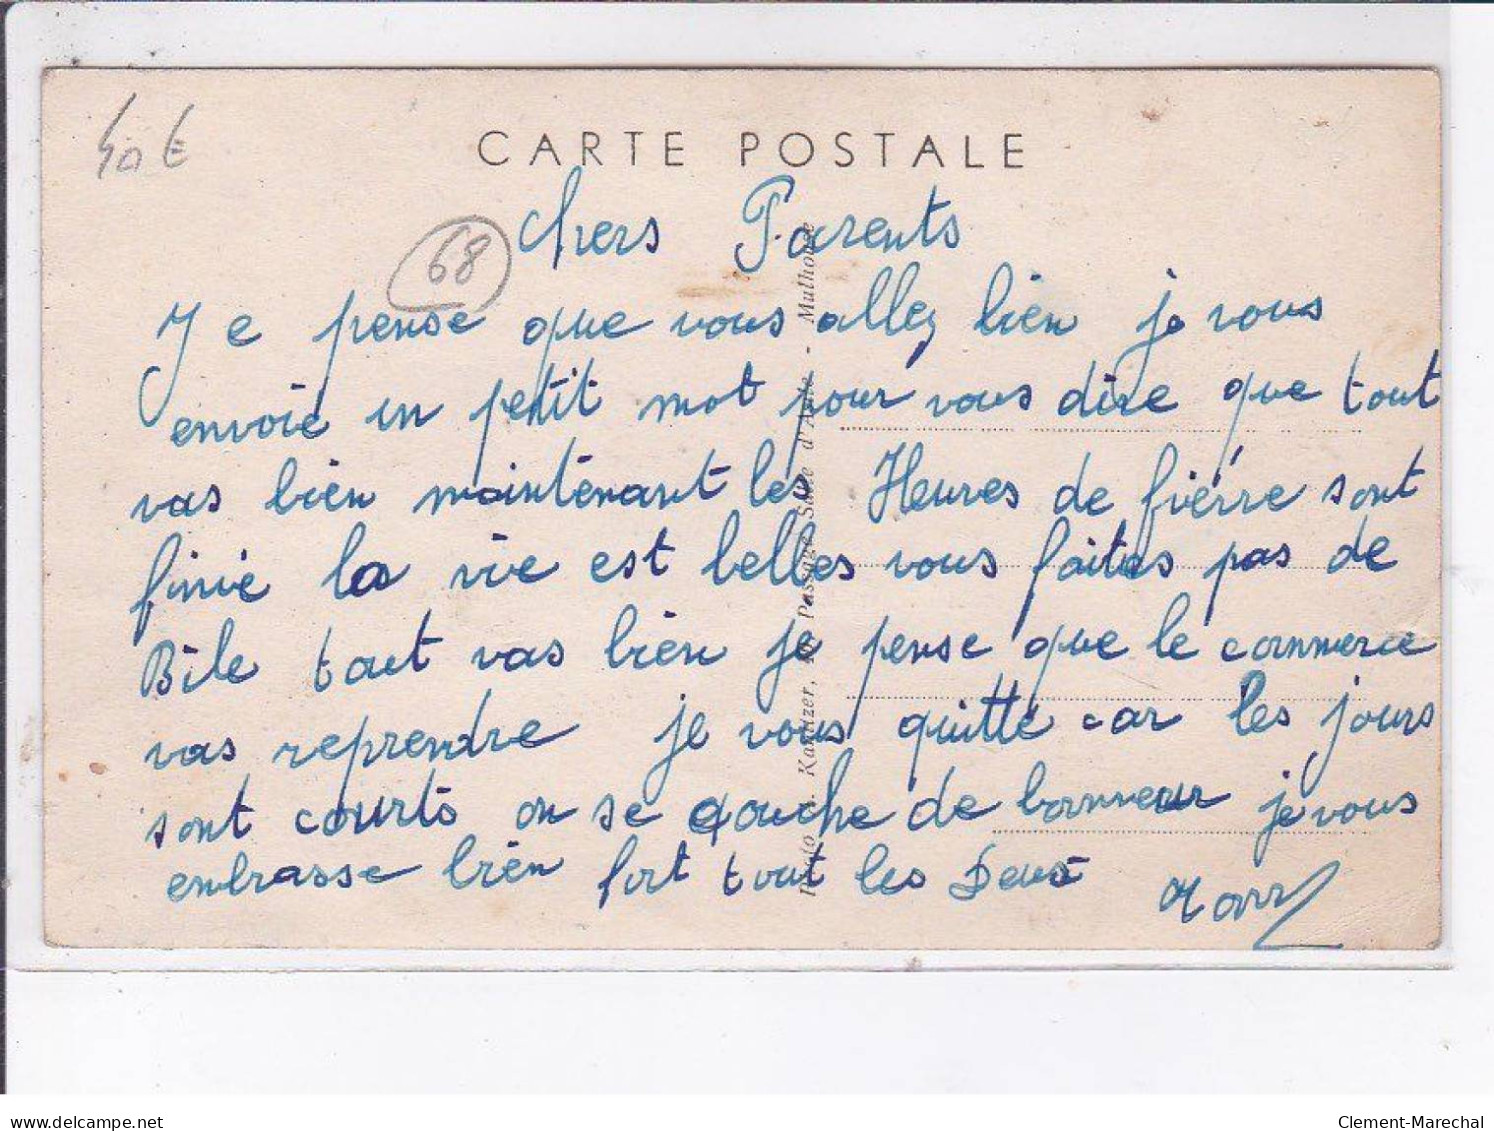 40 €
CARTE POSTALE
68
Chers Parents
Je pense que vous allez bien je vous
envoie un petit mot pour vous dire que tout
vas bien maintenant les Heures de fièrre sont
finie la vie est belles vous faites pas de
Bile tout vas bien je pense que le commerce
vas reprendre je vous quitte car les jours
sont courts on se couche de bonneur je vous
embrasse bien fort tout les Deux
Photo Kanitzer, Passage Salle d'Aste - Mulhouse
delcampe.net
Clement-Marechal